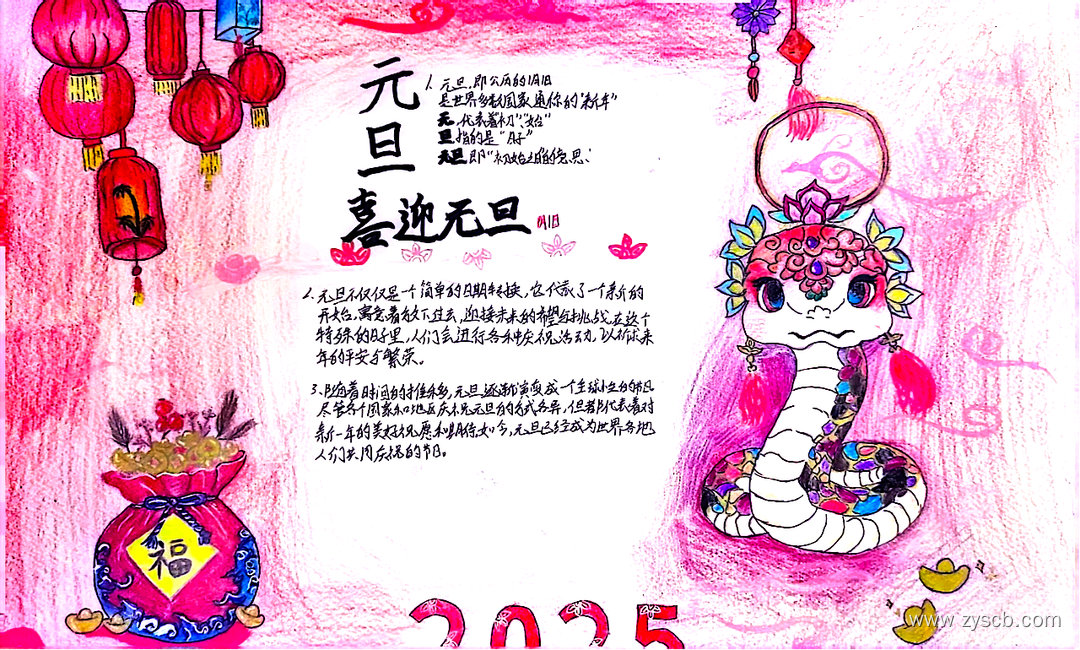 元
旦
1. 元旦,即公历的1月1日
是世界多数国家通称的“新年”
元,代表着“初”、“始”
旦指的是“日子”
元旦即“初始之日”的意思.
喜迎元旦
1月1日
2. 元旦不仅仅是一个简单的日期转换,它代表了一个新的
开始,寓意着放下过去,迎接未来的希望与挑战,在这个
特殊的日子里,人们会进行各种庆祝活动,以祈求来
年的平安与繁荣。
3. 随着时间的推移,元旦逐渐演变成一个全球性的节日
尽管各个国家和地区庆祝元旦的方式各异,但都代表着对
新一年的美好祝愿和期待如今,元旦已经成为世界各地
人们共同庆祝的节日。
福
2025
www.zyscb.com